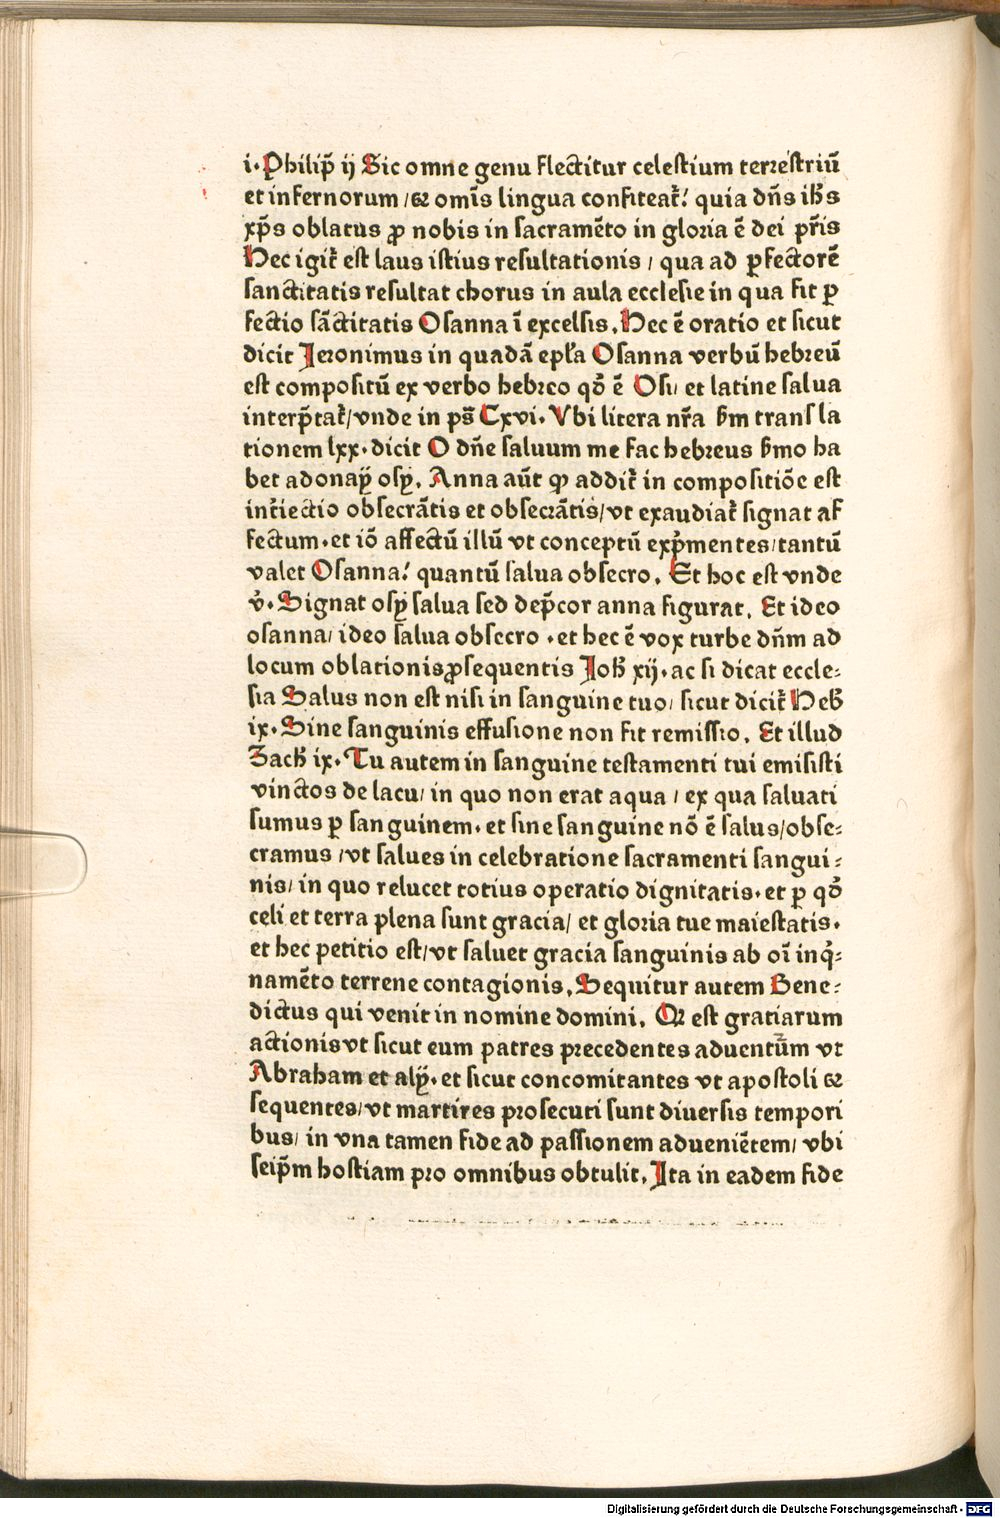 i. Philip̄ ij Sic omne genu flectitur celestium terrestriū
et infernorum / ꝛ om̄s lingua confiteat᷑ : quia dn̄s ihs̄
xp̄s oblatus ꝓ nobis in sacramēto in gloria ē dei pr̄is
Hec igit᷑ est laus istius resultationis / qua ad ꝑfectorē
sanctitatis resultat chorus in aula ecclesie in qua fit ꝑ
fectio sāctitatis Osanna ī excelsis. Hec ē oratio et sicut
dicit Jeronimus in quadā epl̄a Osanna verbū hebreū
est compositū ex verbo hebreo qō ē Osi / et latine salua
interp̄tat᷑ / vnde in ps̄ Cxvi. Vbi litera nr̄a ẜm transla
tionem lxx. dicit O dn̄e saluum me fac hebreus ẜmo ha
bet adonay osy. Anna aūt ꝙ addit᷑ in compositiōe est
int᷑iectio obsecrātis et obsecrātis / vt exaudiat᷑ signat af
fectum. et iō affectū illū vt conceptū exp̄mentes / tantū
valet Osanna : quantū salua obsecro. Et hoc est vnde
v̄. Signat osy salua sed dep̄cor anna figurat. Et ideo
osanna / ideo salua obsecro . et hec ē vox turbe dn̄m ad
locum oblationis ꝓsequentis Joh̄ xij. ac si dicat eccle:
sia Salus non est nisi in sanguine tuo / sicut dicit᷑ Heb̄
ix. Sine sanguinis effusione non fit remissio. Et illud
Zach̄ ix. Tu autem in sanguine testamenti tui emisisti
vinctos de lacu / in quo non erat aqua / ex qua saluati
sumus ꝑ sanguinem. et sine sanguine nō ē salus / obse:
cramus / vt salues in celebratione sacramenti sangui:
nis / in quo relucet totius operatio dignitatis. et ꝑ qō
celi et terra plena sunt gracia / et gloria tue maiestatis.
et hec petitio est / vt saluet gracia sanguinis ab oī inq̄:
namēto terrene contagionis. Sequitur autem Bene:
dictus qui venit in nomine domini. Qꝛ est gratiarum
actionis vt sicut eum patres precedentes aduentūm vt
Abraham et alij. et sicut concomitantes vt apostoli ꝛ
sequentes / vt martires prosecuti sunt diuersis tempori
bus / in vna tamen fide ad passionem adueniētem / vbi
seip̄m hostiam pro omnibus obtulit. Ita in eadem fide
Digitalisierung gefördert durch die Deutsche Forschungsgemeinschaft - DFG